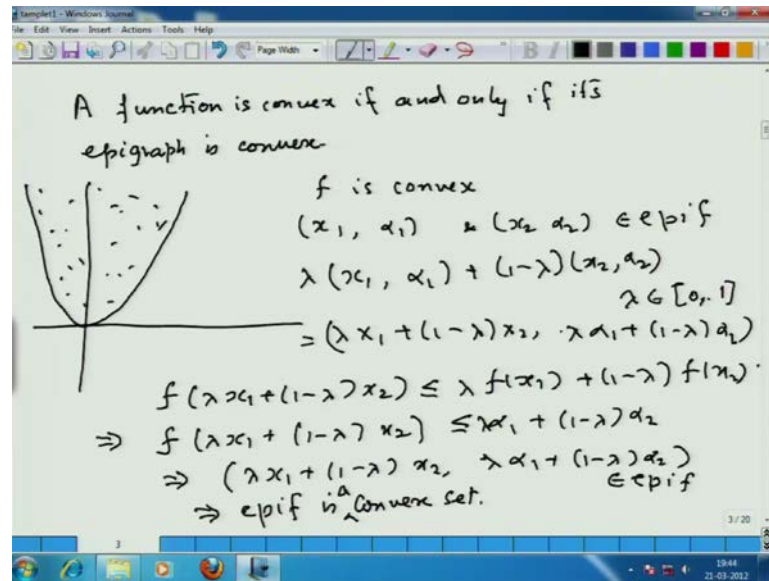 tamplet1 - Windows Journal
File Edit View Insert Actions Tools Help
Page Width
B I
A function is convex if and only if its
epigraph is convex
f is convex
(x₁, α₁) & (x₂ α₂) ∈ epi f
λ (x₁, α₁) + (1-λ)(x₂, α₂)
λ ∈ [0, 1]
= (λ x₁ + (1-λ) x₂, λ α₁ + (1-λ) α₂)
f (λ x₁ + (1-λ) x₂) ≤ λ f(x₁) + (1-λ) f(x₂)
⇒ f (λx₁ + (1-λ) x₂) ≤ λα₁ + (1-λ) α₂
⇒ (λx₁ + (1-λ) x₂, λ α₁ + (1-λ) α₂)
∈ epi f
⇒ epi f is a convex set.
3/20
3
19:44
21-03-2012